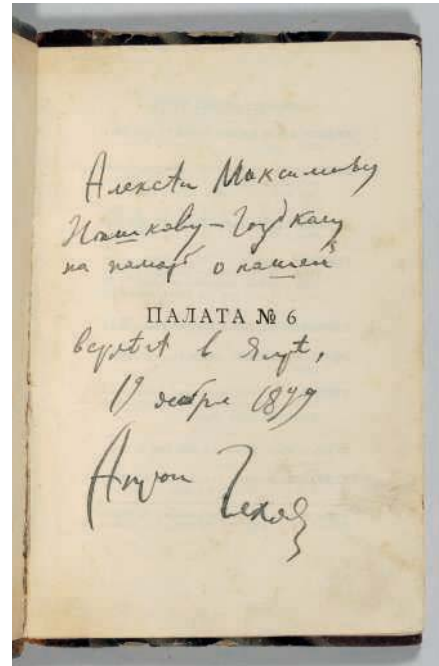 Алексѣю Максимовичу
Пѣшкову-Горькому
на память о нашей
ПАЛАТА № 6
встрѣчѣ в Ялтѣ,
19 1899
Антон Чехов